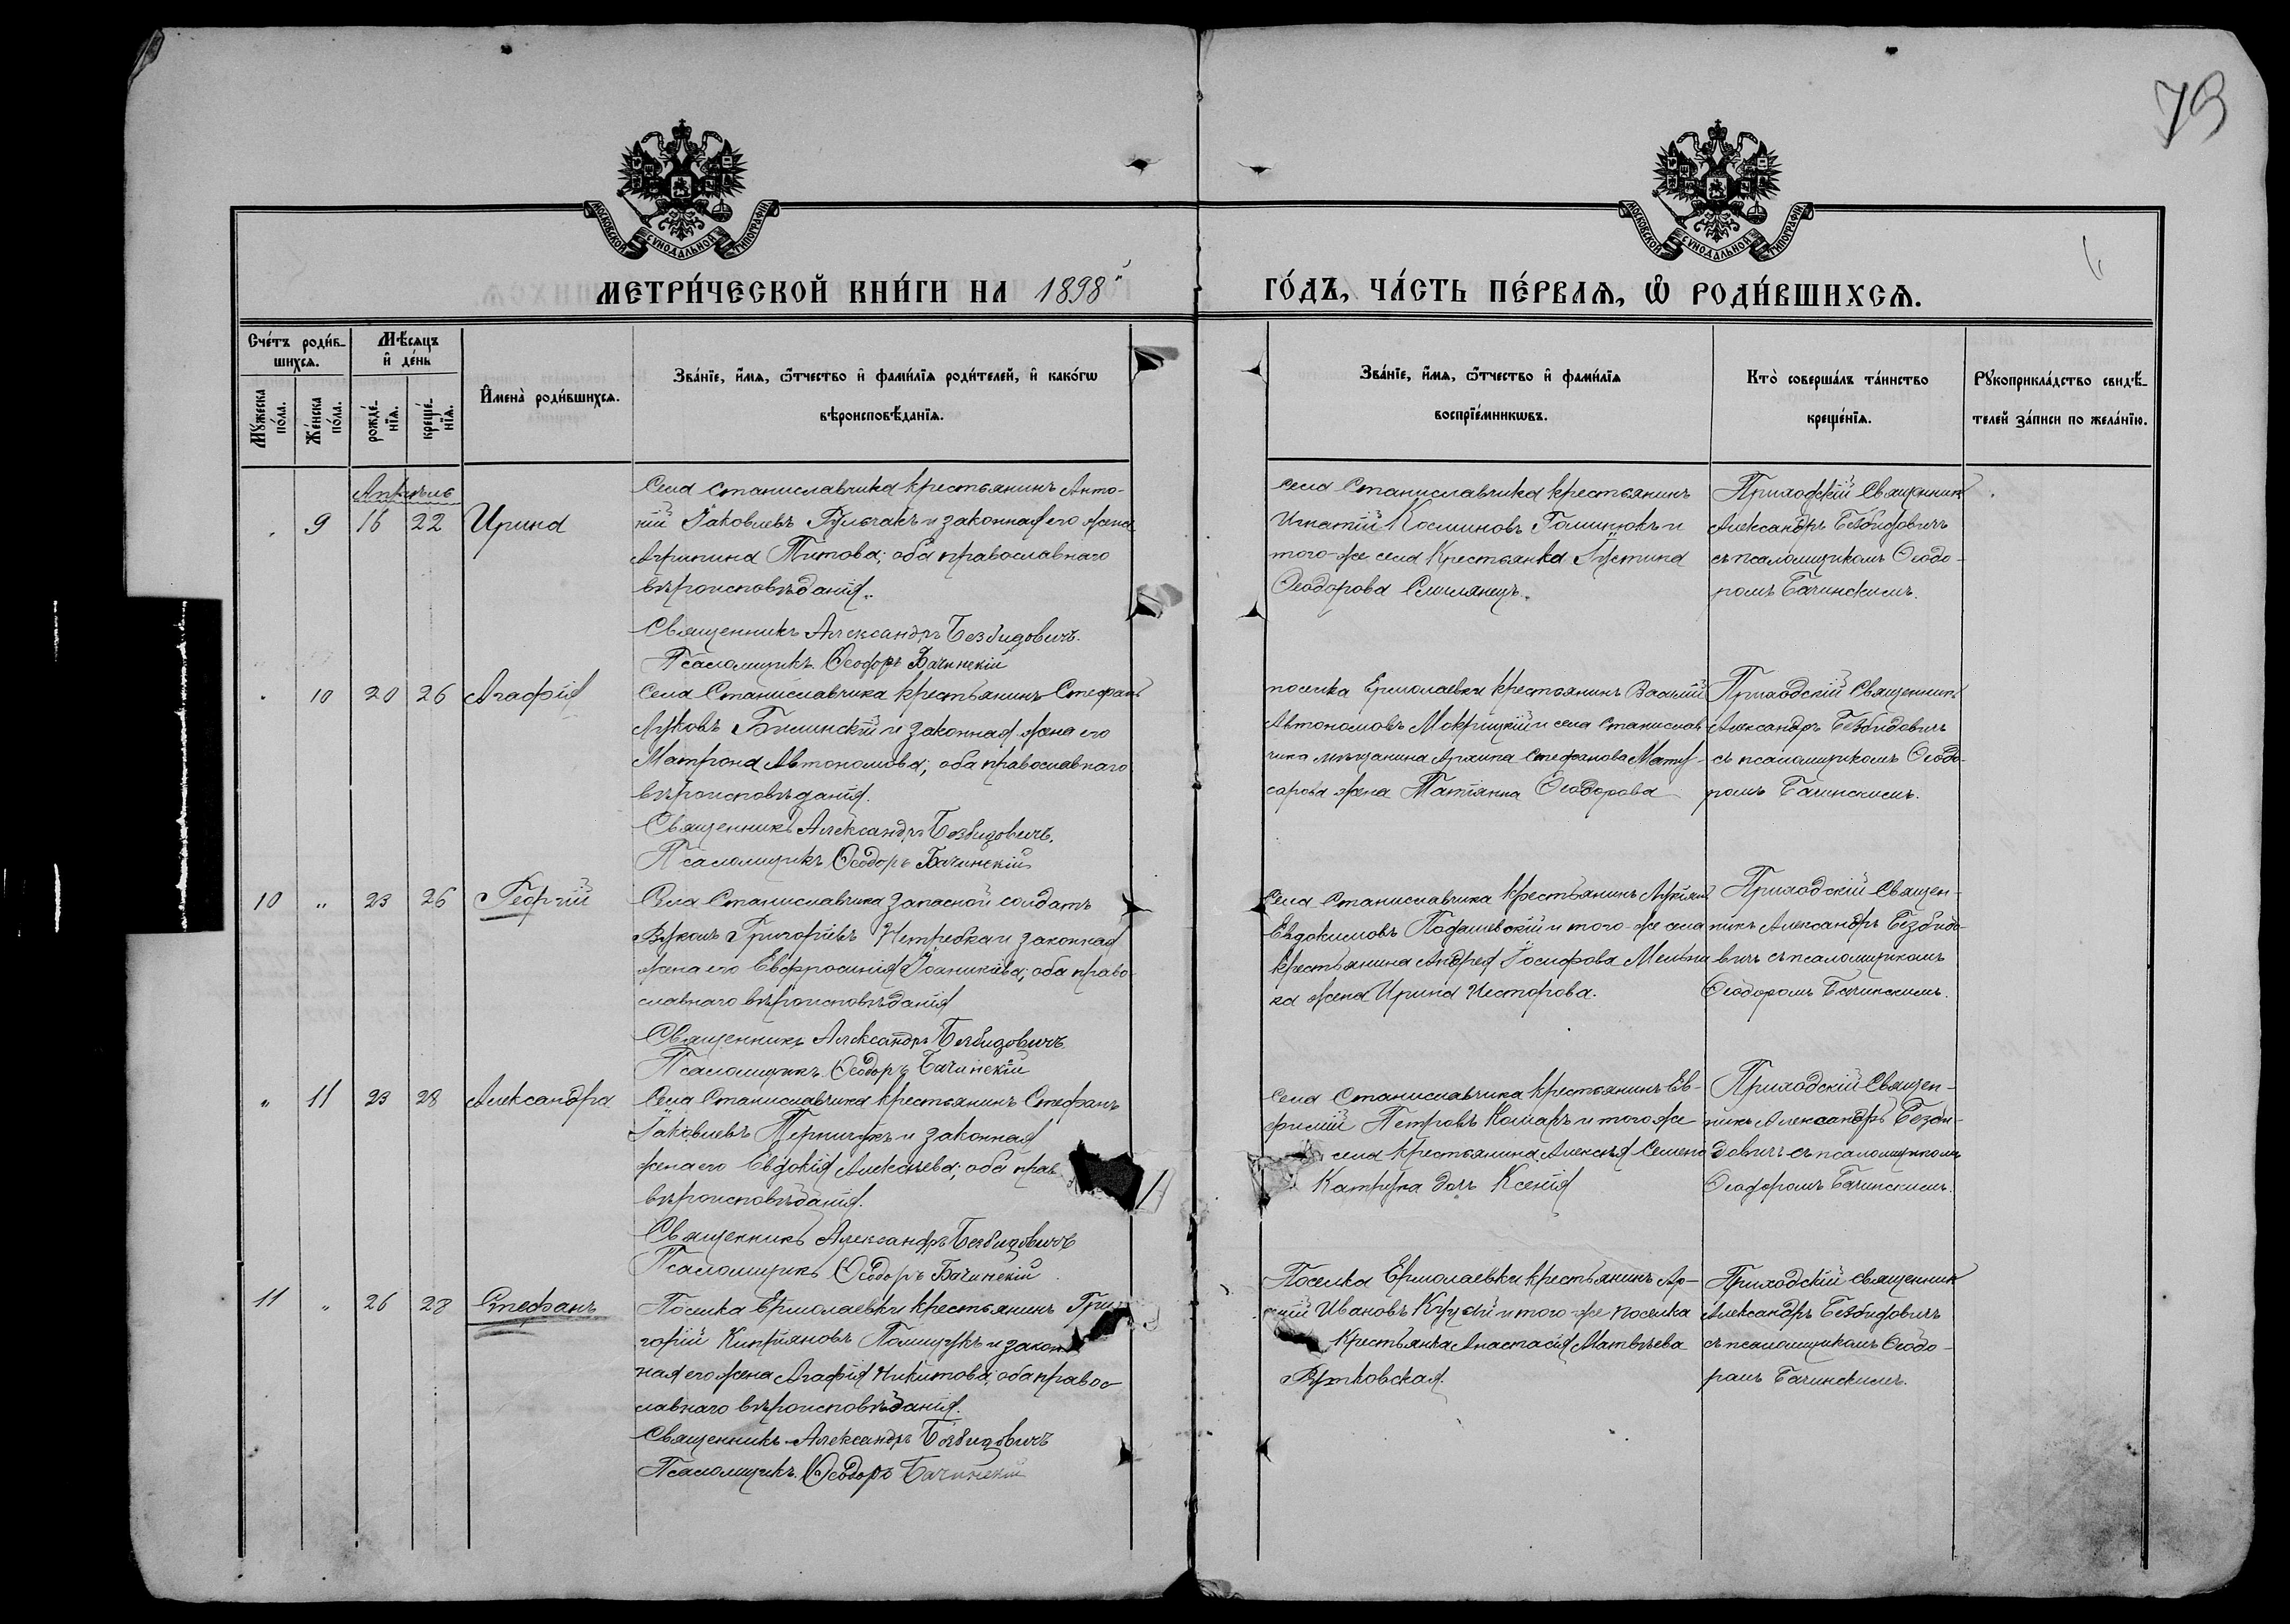 79
МОСКОВСКОЙ СѴНОДАЛЬНОЙ ТИПОГРАФІИ
МОСКОВСКОЙ СѴНОДАЛЬНОЙ ТИПОГРАФІИ
МЕТРИ́ЧЕСКОЙ КНИ́ГИ НА 1898
ГО́ДЪ, ЧА́СТЬ ПЕ́РВАѦ, Ѽ РОДИ́ВШИХСѦ.
Сче́тъ роди́в-
шихсѧ.
Мꙋ́жеска
по́ла.
Же́нска
по́ла.
Мѣ́сѧцъ
и҆ де́нь
рожде́-
нїѧ.
креще́-
нїѧ.
И҆мена̀ роди́вшихсѧ.
Зва́нїе, и҆́мѧ, ѻ҆́тчество и҆ фами́лїѧ роди́телей, и҆ како́гѡ
вѣроисповѣ́данїѧ.
Зва́нїе, и҆́мѧ, ѻ҆́тчество и҆ фами́лїѧ
воспрїе́мникѡвъ.
Кто̀ соверша́лъ та́инство
креще́нїѧ.
Рꙋкоприкла́дство свидѣ́-
телей за́писи по жела́нїю.
Апрѣль
9 16 22 Ирина
Села Станиславчика крестьянинъ Анто-
ній Іаковлевъ Гульчакъ и законная его жена
Агрипина Титова; оба православнаго
вѣроисповѣданія.
Священникъ Александръ Безбидовичъ.
Псаломщикъ Ѳеодоръ Бачинскій
Села Станиславчика крестьянинъ
Игнатій Косминовъ Томишокъ и
того-же села Крестьянка Іустина
Ѳеодорова Смилянецъ.
Приходскій Священник
Александръ Безбидовичъ
съ псаломщикомъ Ѳеодо-
ромъ Бачинскимъ.
10 20 26 Агафія
Села Станиславчика крестьянинъ Стефанъ
Луковъ Билинскій и законная жена его
Матрона Автономова; оба православнаго
вѣроисповѣданія.
Священникъ Александръ Безбидовичъ.
Псаломщикъ Ѳеодоръ Бачинскій
поселка Ермолаевки крестьянинъ Василій
Автономовъ Мокрицкій и села Станислав
чика мѣщанина Архипа Стефанова
жена Татіанна Ѳеодорова
Приходскій Священникъ
Александръ Безбидовичъ
съ псаломщикомъ Ѳеодо-
ромъ Бачинскимъ.
10 " 23 26 Георгій
Села Станиславчика запасной солдатъ
Вуколъ Григоріевъ Нетребка и законная
жена его Евфросинія Іоаникіева; оба право-
славнаго вѣроисповѣданія
Священникъ Александръ Безбидовичъ
Псаломщикъ Ѳеодоръ Бачинскій
Села Станиславчика крестьянинъ Лукіанъ
Евдокимовъ Подашевскій и того-же села
крестьянина Андрея Іосифова Мельни
ка жена Ирина Несторова.
Приходскій Священ-
никъ Александръ Безбидо-
вичъ съ псаломщикомъ
Ѳеодоромъ Бачинскимъ.
" 11 23 28 Александра
Села Станиславчика крестьянинъ Стефанъ
Іаковлевъ Перничукъ и законная
жена его Евдокія Алексѣева; оба прав
вѣроисповѣданія.
Священникъ Александръ Безбидовичъ
Псаломщикъ Ѳеодоръ Бачинскій
Села Станиславчика крестьянинъ Ев-
фимій Петровъ Комаръ и того же
села крестьянина Алексѣя Семено
Катрука дочь Ксенія
Приходскій Священ-
никъ Александръ Безби-
довичъ съ псаломщикомъ
Ѳеодоромъ Бачинскимъ.
11 " 26 28 Стефанъ
Поселка Ермолаевки крестьянинъ Гри-
горій Кипріяновъ Полищукъ и закон
ная его жена Агафія Никитова; оба правос-
лавнаго вѣроисповѣданія.
Священникъ Александръ Безбидовичъ
Псаломщикъ Ѳеодоръ Бачинскій
Поселка Ермолаевки крестьянинъ Ар-
Ивановъ и того-же поселка
Крестьянка Анастасія Матвѣева
Рутковская.
Приходскій священник
Александръ Безбидовичъ
съ псаломщикомъ Ѳеодо-
ромъ Бачинскимъ.